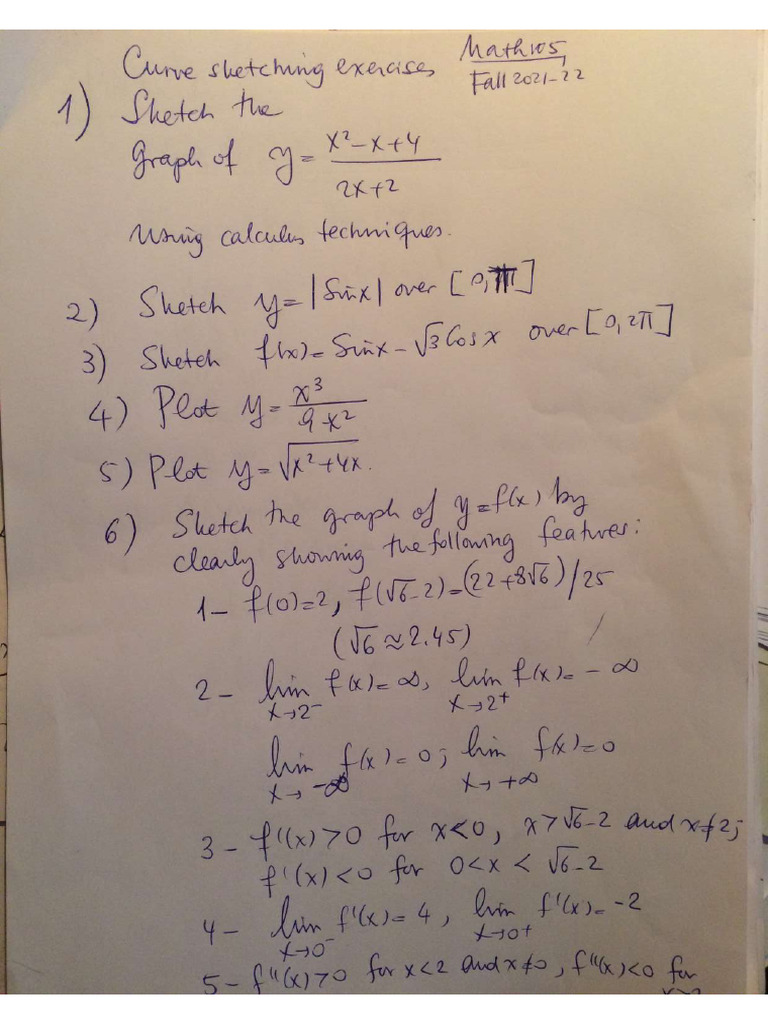 Curve sketching exercises Math105
Fall 2021-22
1) Sketch the
graph of y = (x²-x+4)/(2x+2)
using calculus techniques.
2) Sketch y = |Sinx| over [0,π]
3) Sketch f(x) = Sinx - √3 Cosx over [0,2π]
4) Plot y = x³/(9-x²)
5) Plot y = √(x²+4x).
6) Sketch the graph of y=f(x) by
clearly showing the following features:
1- f(0)=2, f(√6-2)=(22+8√6)/25
(√6≈2.45)
2- lim x→2⁻ f(x)=∞, lim x→2⁺ f(x)=-∞
lim x→-∞ f(x)=0; lim x→+∞ f(x)=0
3- f'(x)>0 for x<0, x>√6-2 and x≠2;
f'(x)<0 for 0<x<√6-2
4- lim x→0⁻ f'(x)=4, lim x→0⁺ f'(x)=-2
5- f''(x)>0 for x<2 and x≠0, f''(x)<0 for